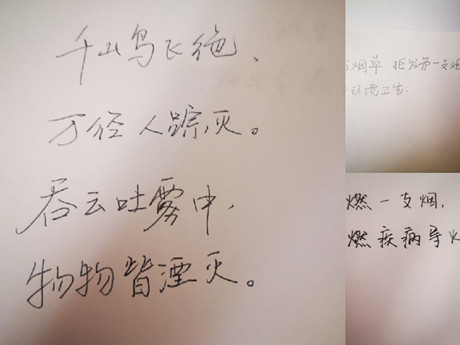 千山鸟飞绝、
万径人踪灭。
吞云吐雾中，
物物皆湮灭。
烟草 拒绝第一支烟
环境卫生.
燃一支烟，
燃疾病导火